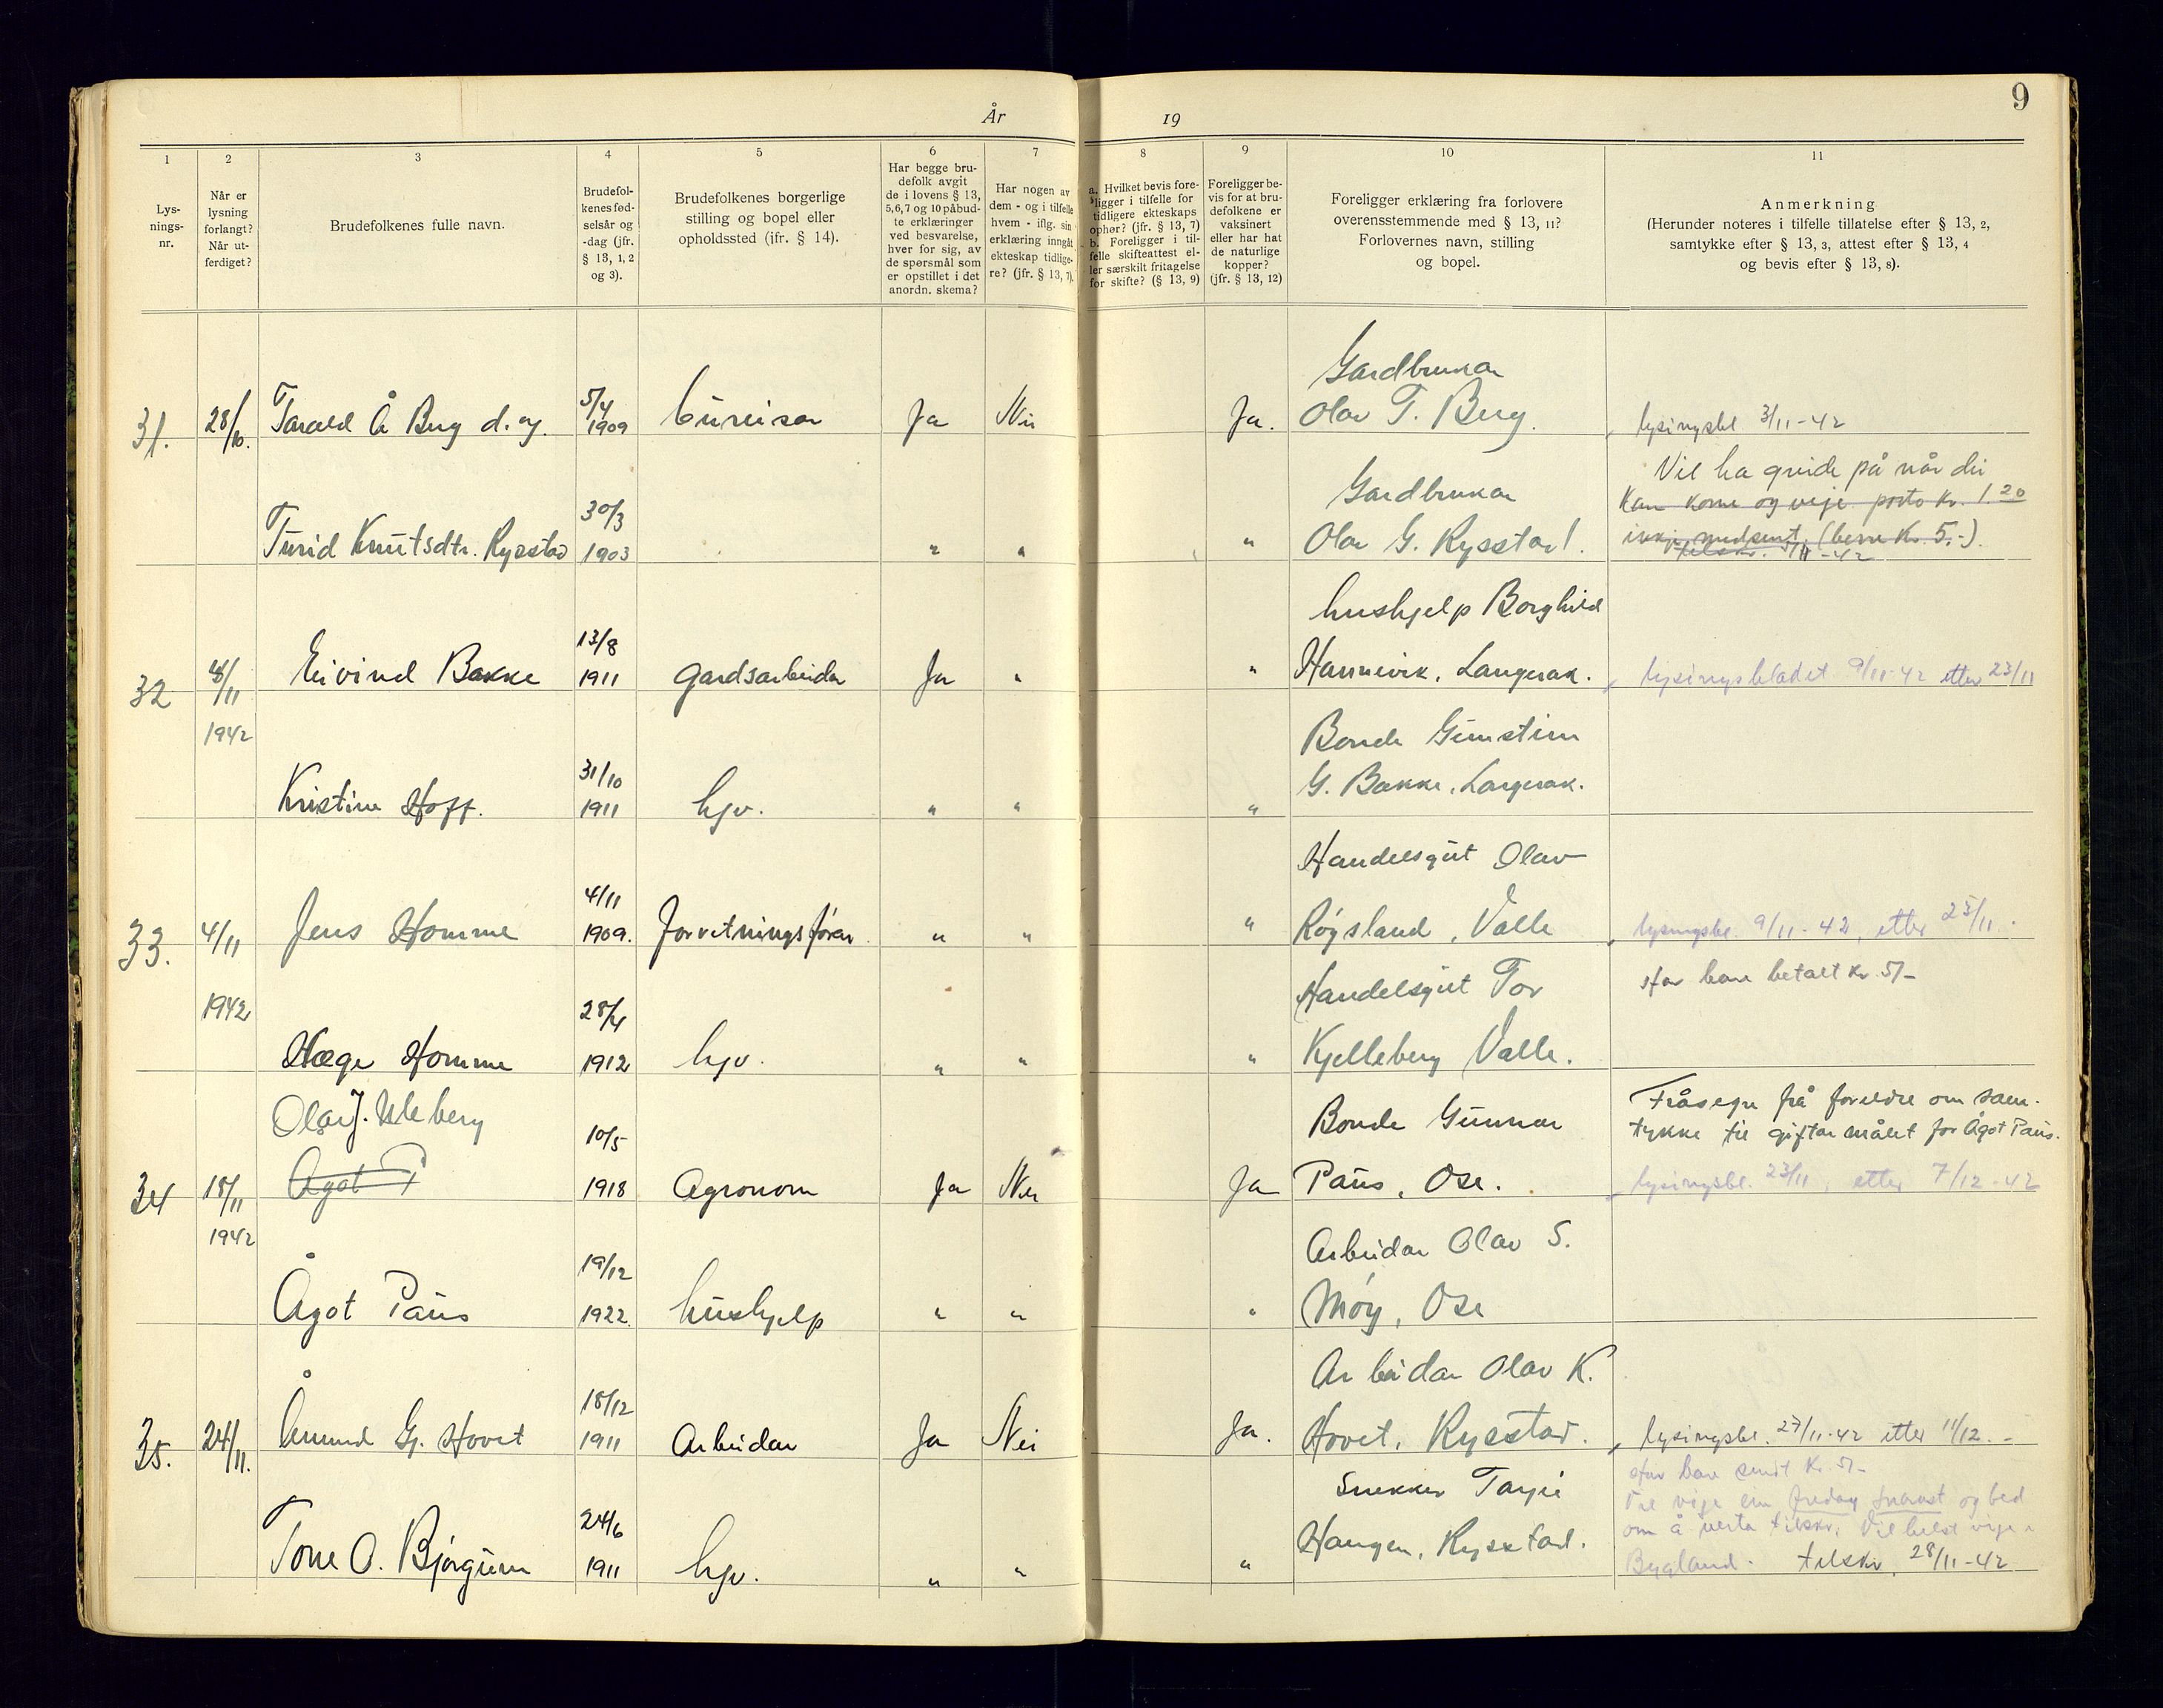 År 19
9
1
2
3
4
5
6
7
8
9
10
11
Lys-
nings-
nr.
Når er
lysning
forlangt?
Når ut-
ferdiget?
Brudefolkenes fulle navn.
Brudefol-
kenes fød-
selsår og
-dag (jfr.
§ 13, 1, 2
og 3).
Brudefolkenes borgerlige
stilling og bopel eller
opholdssted (jfr. § 14).
Har begge bru-
defolk avgit
de i lovens § 13,
5, 6, 7 og 10 påbud-
te erklæringer
ved besvarelse,
hver for sig, av
de spørsmål som
er opstillet i det
anordn. skema?
Har nogen av
dem - og i tilfelle
hvem - iflg. sin
erklæring inngått
ekteskap tidlige-
re? (jfr. § 13, 7).
a. Hvilket bevis fore-
ligger i tilfelle for
tidligere ekteskaps
ophør? (jfr. § 13, 7)
b. Foreligger i til-
felle skifteattest el-
ler særskilt fritagelse
for skifte? (§ 13, 9)
Foreligger be-
vis for at bru-
defolkene er
vaksinert
eller har hat
de naturlige
kopper?
(jfr. § 13, 12)
Foreligger erklæring fra forlovere
overensstemmende med § 13, 11?
Forlovernes navn, stilling
og bopel.
Anmerkning
(Herunder noteres i tilfelle tillatelse efter § 13, 2,
samtykke efter § 13, 3, attest efter § 13, 4
og bevis efter § 13, 8).
31. 28/10. Tarald Å Berg d. y. 5/4 1909 bureisar Ja Nei Ja.
Gardbrukar
Olav T. Berg.
lysingsbl. 3/11-42
Vil ha greide på når dei
kan kome og vige. porto kr. 1.20
ikkje medsent. (berre kr. 5.-).
tilskr. 3/11-42
Turid Knutsdtr. Rysstad 30/3 1903 " " "
Gardbrukar
Olav G. Rysstad.
32 4/11 1942 Eivind Bakke 13/8 1911 gardsarbeidar Ja " "
hushjelp Borghild
Hannevik, Langerak.
lysingsbladet 9/11-42 etter 23/11
Kristine Hoff. 31/10 1911 hjv. " " "
Bonde Gunstein
G. Bakke, Langerak.
33. 4/11 1942 Jens Homme 4/11 1909. forretningsfører " " "
Handelsgut Olav
Røysland, Valle
lysingsbl. 9/11-42, etter 23/11.
Har bare betalt kr. 5/-
Hæge Homme 28/4 1912 hjv. " " "
Handelsgut Tor
Kjelleberg Valle.
34 18/11 1942 Olav J. Uleberg
Ågot P
10/5 1918 Agronom Ja Nei Ja
Bonde Gunnar
Paus, Ose.
Fråsegn frå foreldre om sam-
tykke til giftarmålet for Ågot Paus.
lysingsbl. 23/11, etter 7/12-42
Ågot Paus 19/12 1922. hushjelp " " "
Arbeidar Olav S.
Moy, Ose
35. 24/11. Åmund G. Hovet 18/12 1911 Arbeidar Ja Nei Ja.
Arbeidar Olav K.
Hovet, Rysstad.
lysingsbl. 27/11-42 etter 11/12.-
Har bare sendt kr. 5/-
Vil vige ein fredag snarast og bed
om å verta tilskr. Vil helst vige i
Bygland. tilskr. 28/11-42
Tone O. Bjørgum 24/6 1911 hjv. " " "
Snekker Tarjei
Haugen, Rysstad.